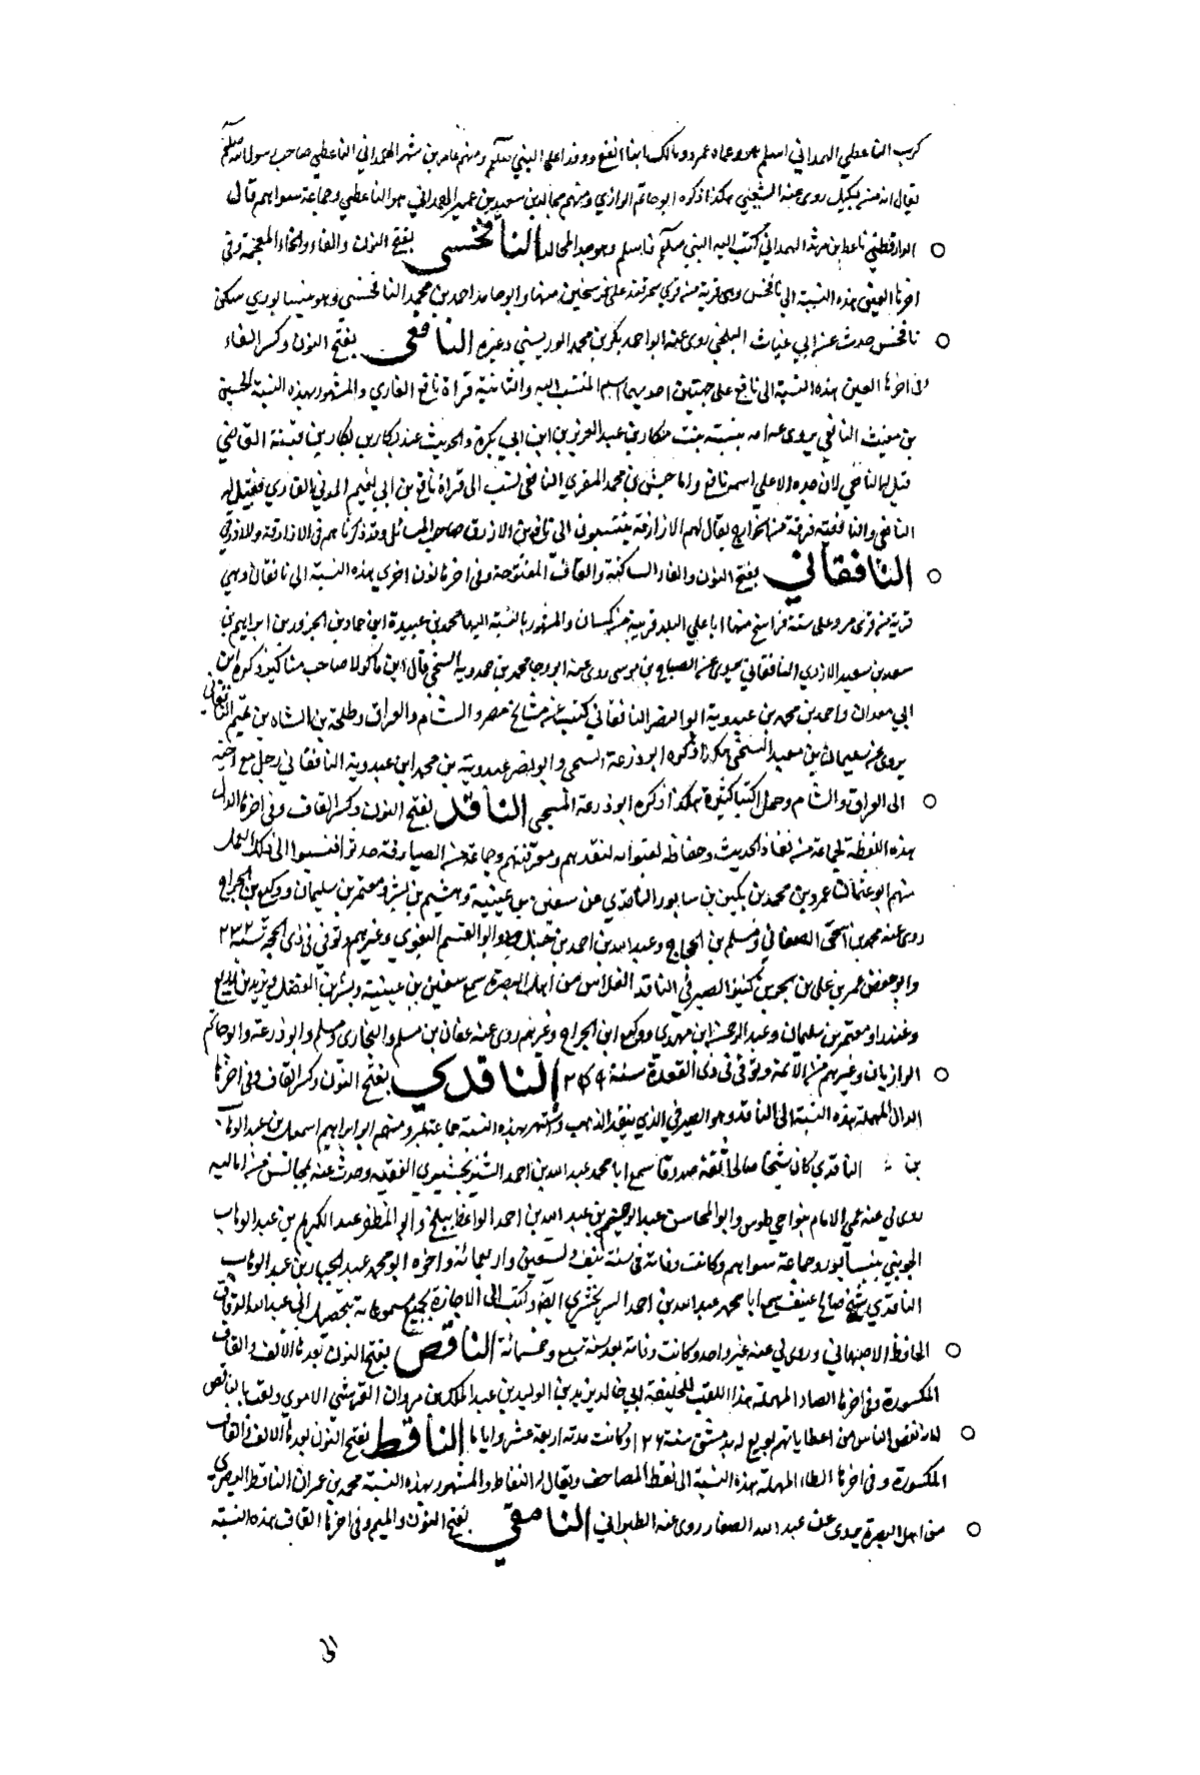 كرب الناعطي الهمداني اسلم هو وعماه عمرو ومالك ابنا ايفع ووفدا على النبي صلعم ومنهم عامر بن شهر الهمداني الناعطي صاحب رسول الله صلعم
يقال انه من بكيل روى عنه الشعبي هكذا ذكره ابو حاتم الرازي ومنهم مجالد بن سعيد بن عمير الهمداني هو الناعطي وجماعة سواهم قال
الدارقطني ناعط بن مرثد الهمداني كتب اليه النبي صلعم فاسلم وهو جد المجالد النافخسي بفتح النون والفاء والخاء المعجمة وفي
اخرها السين هذه النسبة الى نافخس وهي قرية من قرى سمرقند على فرسخين منها وابو حامد احمد بن محمد النافخسي وهو نيسابوري سكن
نافخس حدث عن ابي غياث البلخي روى عنه ابو احمد بكر بن محمد الورسيني وغيره النافعي بفتح النون وكسر الفاء
وفي اخرها العين هذه النسبة الى نافع على جهتين احديهما اسم المنتسب اليه والثانية قراة نافع القاري والمشهور بهذه النسبة الحسين
بن مغيث النافعي يروى عن امه بنت بكار بن عبد العزيز بن ابي بكرة والحديث عند بكار بن قتيبة القاضي
قيل له النافعي لان جده الاعلى اسمه نافع واما حبش بن محمد المقري النافعي نسب الى قراة نافع بن ابي نعيم المدني القاري فقيل له
النافعي والنافعية فرقة من الخوارج يقال لهم الازارقة ينتسبون الى نافع بن الازرق صاحب المسائل وقد ذكرناهم في الازارقة والازرقي
النافقاني بفتح النون والفاء الساكنة والقاف المفتوحة وفي اخرها نون اخرى هذه النسبة الى نافقان وهي
قرية من قرى مرو على ستة فراسخ منها باعلي البلد قريبة من كمسان والمشهور بالنسبة اليها محمد بن عبيدة ابن حماد بن ابراهيم بن
سعد بن سعيد الازدي النافقاني يروى عن الصباح بن موسى روى عنه ابو رجا محمد بن حمدويه السنجي قال ابن ماكولا صاحب مناكير ذكره ابن
ابي معدان واحمد بن محمد بن عبدوية ابو النضر النافقاني كتب عن مشايخ مصر والشام والعراق وطلحة بن الشاه بن تميم النافقاني
يروى عن سليمان بن معبد السنجي هكذا ذكره ابو زرعة السنجي وابو نصر عبدوية بن محمد ابن عبدوية النافقاني رحل مع اخيه
الى العراق والشام وحمل كتبا كثيرة هكذا ذكره ابو زرعة السنجي الناقد بفتح النون وكسر القاف وفي اخرها الدال
هذه اللفظة لجماعة من نقاد الحديث وحفاظه لقبوا به لنقدهم ومعرفتهم وجماعة من الصيارفة حذقوا فنسبوا الى ذلك العمل
منهم ابو عثمان عمرو بن محمد بن بكير بن سابور الناقد يروي عن سفين بن عيينة وهشيم بن بشير ومعتمر بن سليمان ووكيع بن الجراح
روى عنه محمد بن اسحق الصغاني ومسلم بن الحجاج وعبد الله بن احمد بن حنبل وابو القسم البغوي وغيرهم وتوفي في ذي الحجة سنة ٢٣٢
وابو حفص عمرو بن علي بن بحر بن كنيز الصيرفي الناقد الفلاس من اهل البصرة سمع سفين بن عيينة وبشر بن المفضل ويزيد بن زريع
وغندرا ومعتمر بن سليمان وعبد الرحمن ابن مهدي ووكيع ابن الجراح وغيرهم روى عنه عفان بن مسلم والبخاري ومسلم وابو زرعة وابو حاتم
الرازيان وغيرهم من الائمة وتوفى في ذي القعدة سنة ٢٤٩ الناقدي بفتح النون وكسر القاف وفي اخرها
الدال المهملة هذه النسبة الى الناقد وهو الصيرفي الذي ينقد الذهب واشتهر بهذه النسبة جماعة منهم ابو ابراهيم اسمعيل بن عبد الوهاب
بن الناقدي كان شيخا صالحا ثقة صدوقا سمع ابا محمد عبد الله بن احمد الشيرنخشيري الفقيه وحدث عنه بمجالس من اماليه
روى لي عنه عمي الامام بنواحي طوس وابو المحاسن عبد الرحيم بن عبد الله بن احمد الواعظ ببلخ وابو المظفر عبد الكريم بن عبد الوهاب
الجويني بنيسابور وجماعة سواهم وكانت وفاته في سنة نيف وتسعين واربعمائة واخوه ابو محمد عبد الجبار بن عبد الوهاب
الناقدي شيخ صالح عفيف سمع ابا محمد عبد الله بن احمد الشيرنخشيري ايضا وكتب الى الاجازة بجميع مسموعاته بتحصيل ابي عبد الله الدقاق
الحافظ الاصبهاني وروى لي عنه غير واحد وكانت وفاته بعد سنة سبع وخمسمائة الناقص بفتح النون بعدها الالف والقاف
المكسورة وفي اخرها الصاد المهملة هذا اللقب للخليفة ابي خالد يزيد بن الوليد بن عبد الملك بن مروان القرشي الاموي ولقب بالناقص
لانه نقص الناس من اعطياتهم بويع له بدمشق سنة ١٢٦ وكانت مدته اربعة عشر واياما الناقط بفتح النون بعدها الالف والقاف
المكسورة وفي اخرها الطاء المهملة هذه النسبة الى نقط المصاحف ويقال له النقاط والمشهور بهذه النسبة محمد بن عمران الناقط البصري
من اهل البصرة يروى عن عبد الله الصفار روى عنه الطبراني النامقي بفتح النون والميم وفي اخرها القاف هذه النسبة
الى